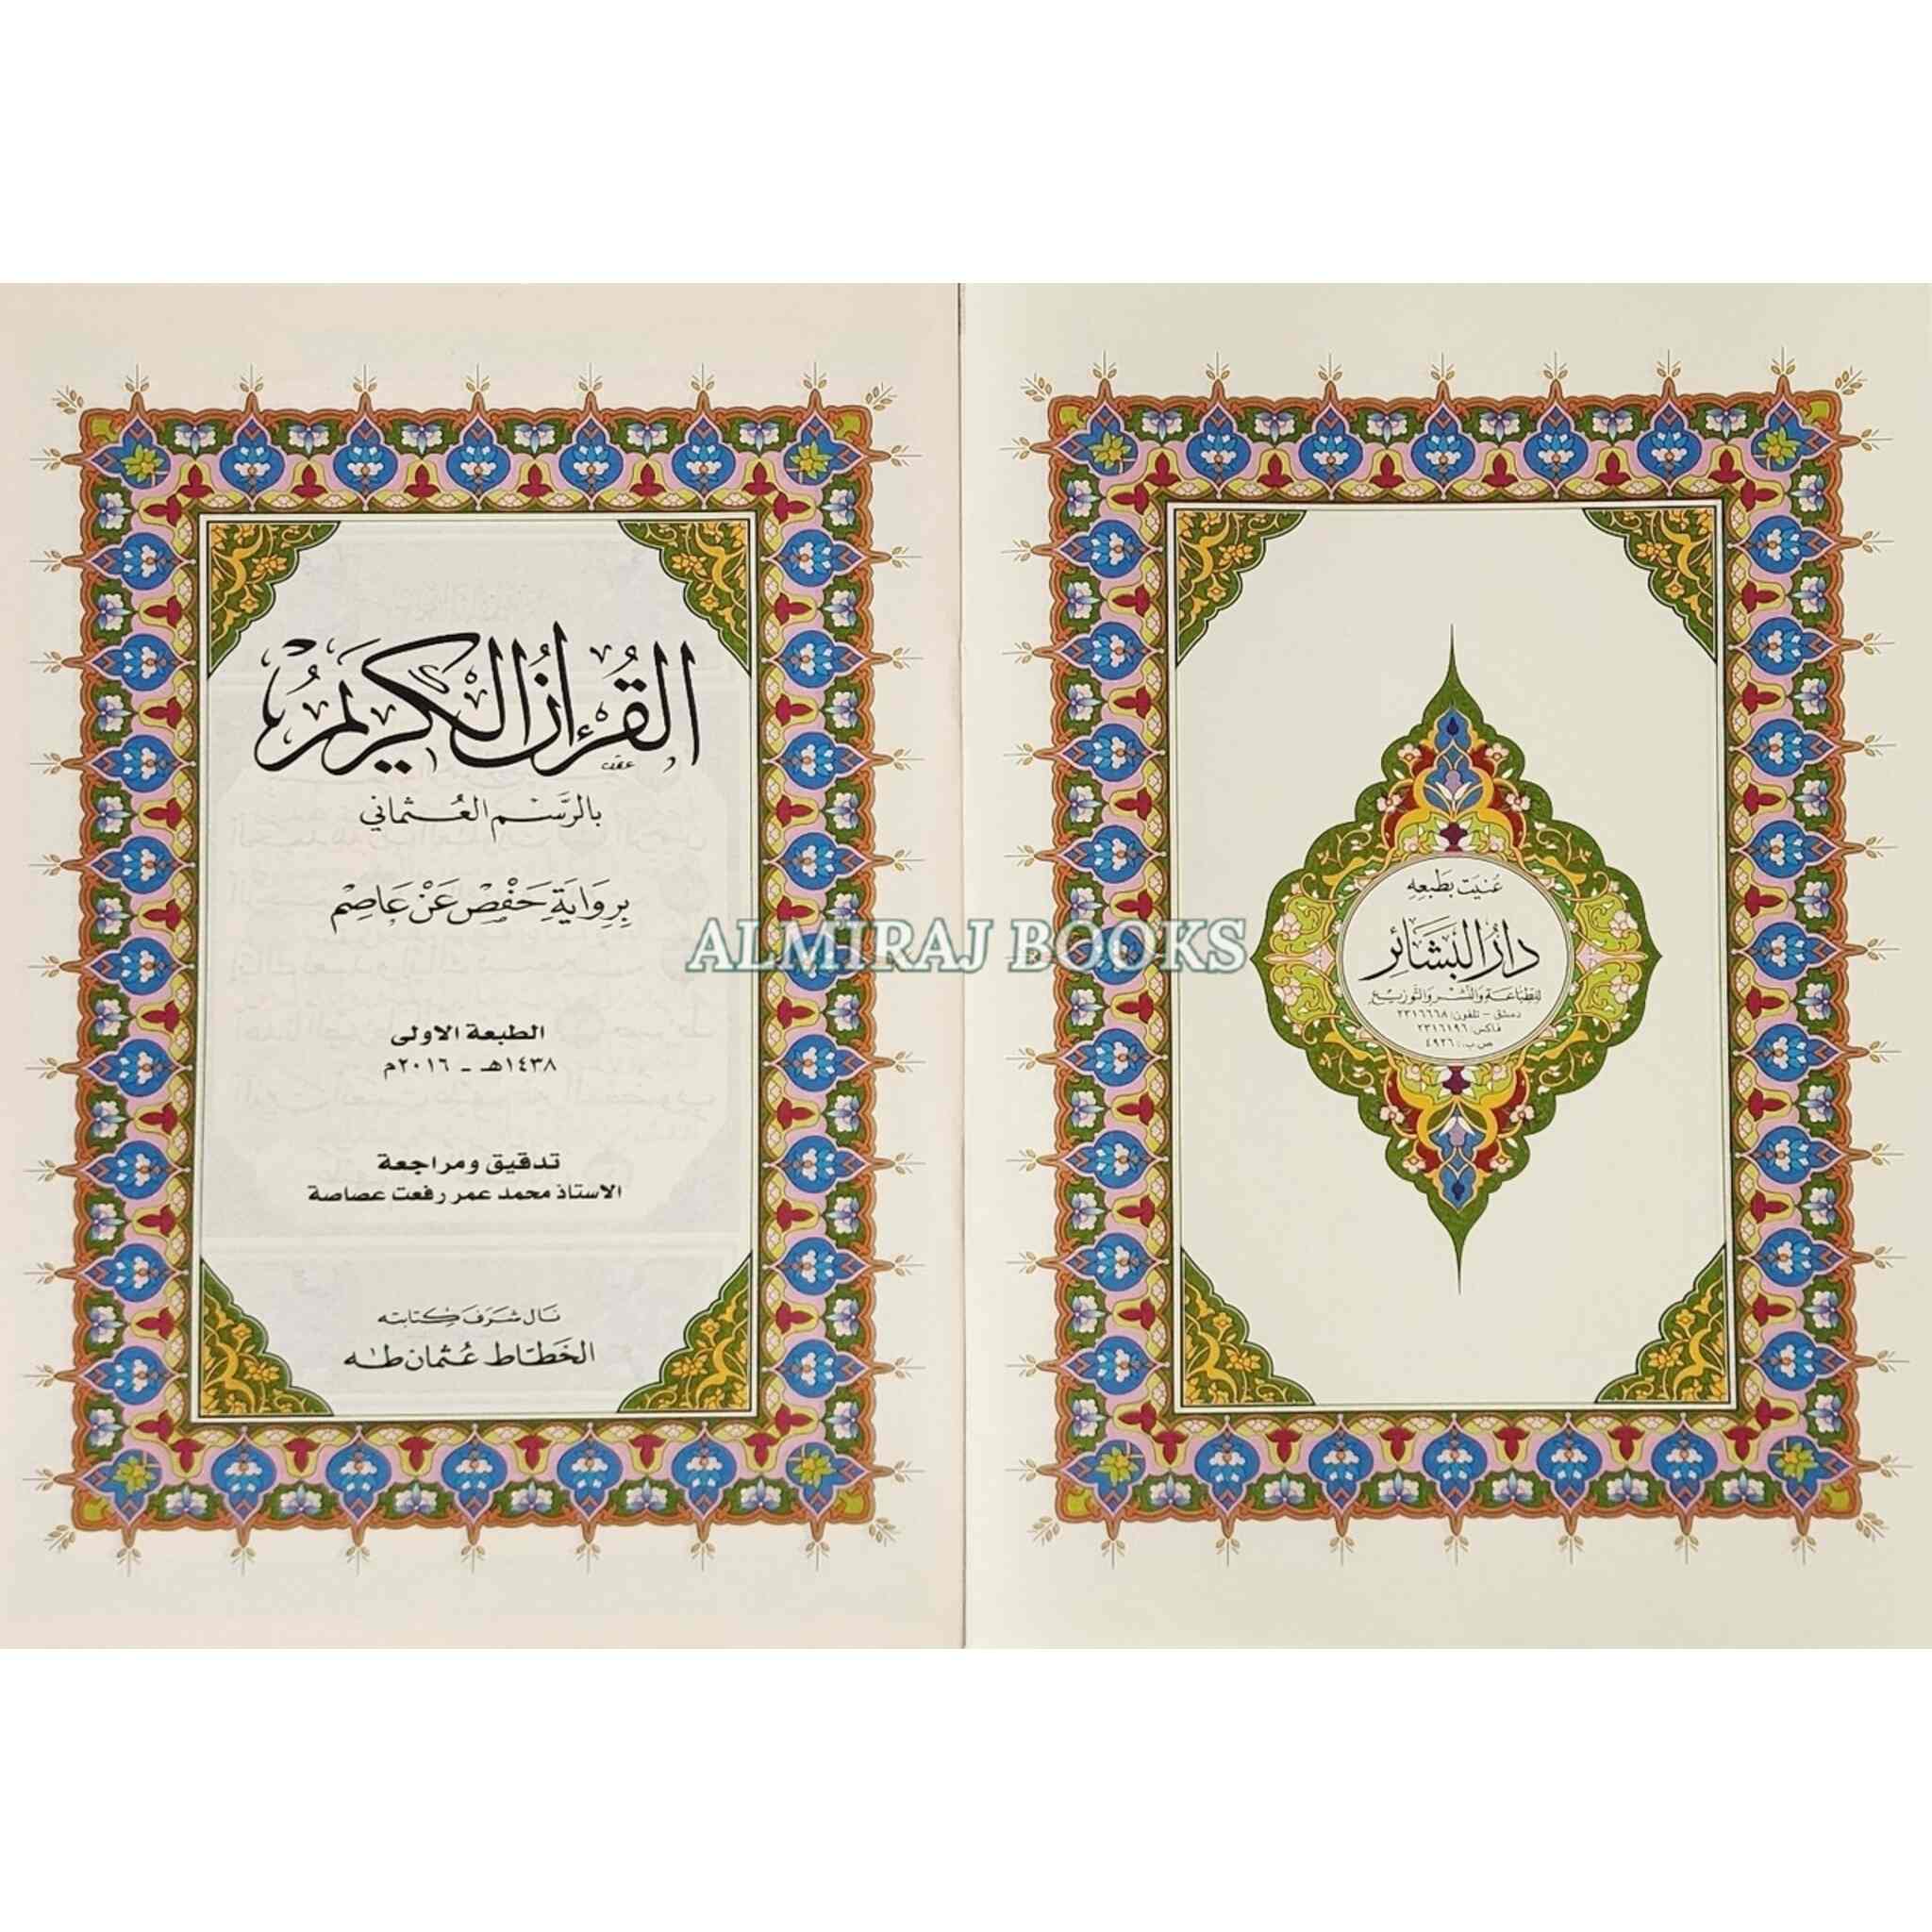 عُنيَت بطَبعِه
دَارُ البَشَائِر
للطباعة والنشر والتوزيع
دمشق - تلفون: ٢٣١٦٦٦٨
فاكس: ٢٣١٦١٩٦
ص.ب.: ٤٩٢٦
القُرءَانُ الكَرِيمُ
بالرَّسْم العُثماني
بِرِوَايَةِ حَفْصٍ عَنْ عَاصِمٍ
الطبعة الاولى
١٤٣٨هـ - ٢٠١٦م
تدقيق ومراجعة
الاستاذ محمد عمر رفعت عصاصة
نَال شَرَفَ كِتابته
الخَطّاط عُثمان طه
ALMIRAJ BOOKS